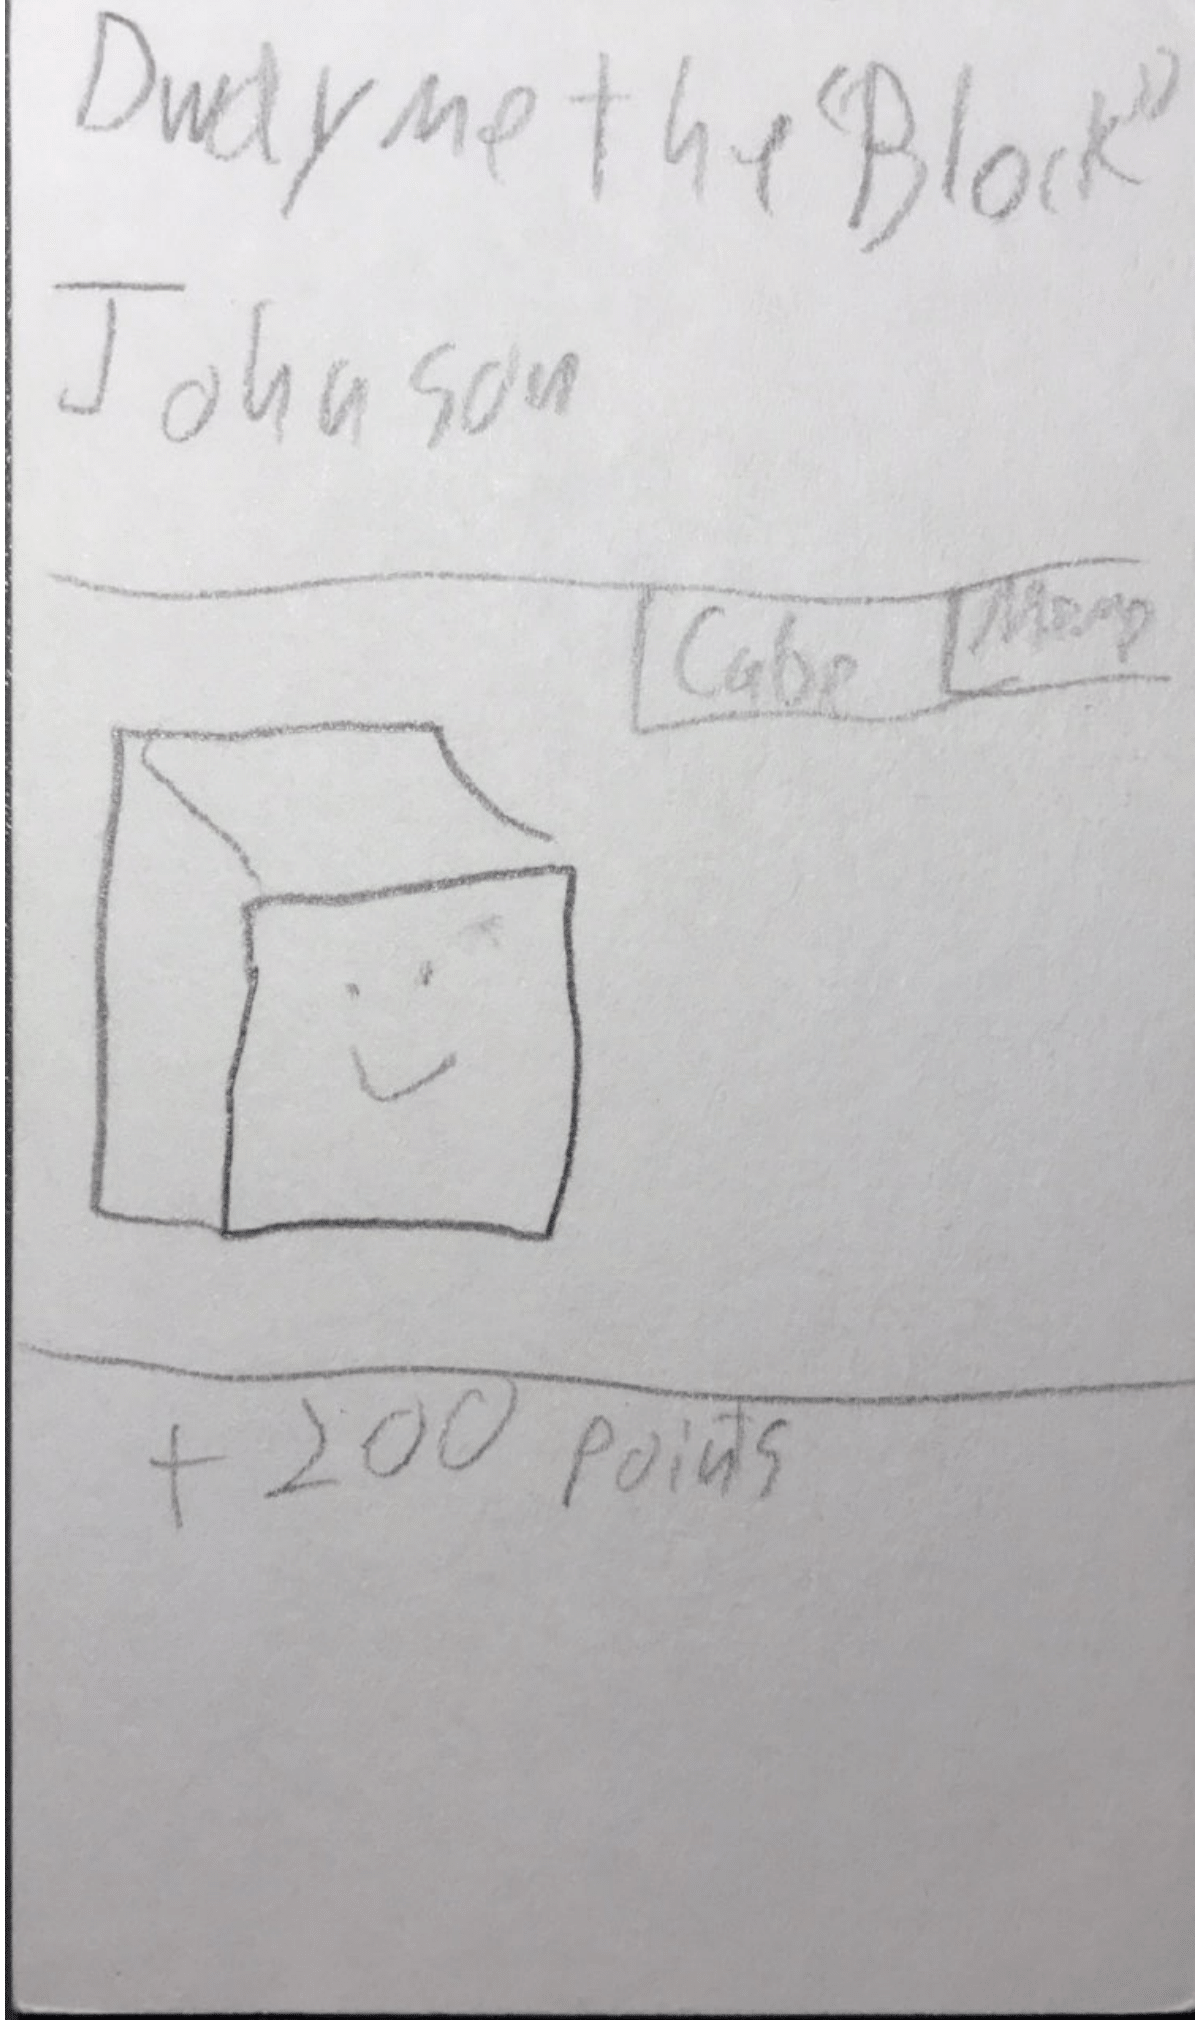 Dwayne the "Block"
Johnson
Cube
+ 200 points